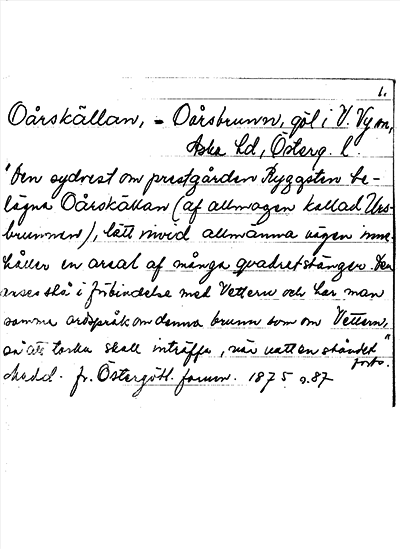 1.
Oårskällan, - Oårsbrunn, göl i V. Ny sn,
Aska hd, Österg. l.
"Den sydvest om prestgården Ryggsten be-
lägna Oårskällan (af allmogen kallad Uås-
brunnen), tätt invid allmänna vägen inne-
håller en areal af många qvadratstänger. Den
anses stå i förbindelse med Vettern och har man
samma ordspråk om denna brunn som om Vettern,
så att torka skall inträffa, när vattenståndet"
forts.
Medd. fr. Östergötl. fornm. 1875 s. 87